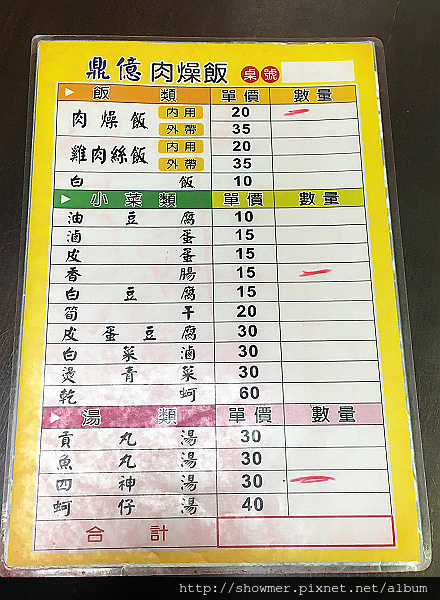 鼎億 肉燥飯 桌號
▶ 飯 類 單價 數量
肉燥飯 內用 20
外帶 35
雞肉絲飯 內用 20
外帶 35
白飯 10
▶ 小菜類 單價 數量
油豆腐 10
滷蛋 15
皮蛋 15
香腸 15
白豆腐 15
筍干 20
皮蛋豆腐 30
白菜滷 30
燙青菜 30
乾蚵 60
▶ 湯 類 單價 數量
貢丸湯 30
魚丸湯 30
四神湯 30
蚵仔湯 40
合計
http://showmer.pixnet.net/album